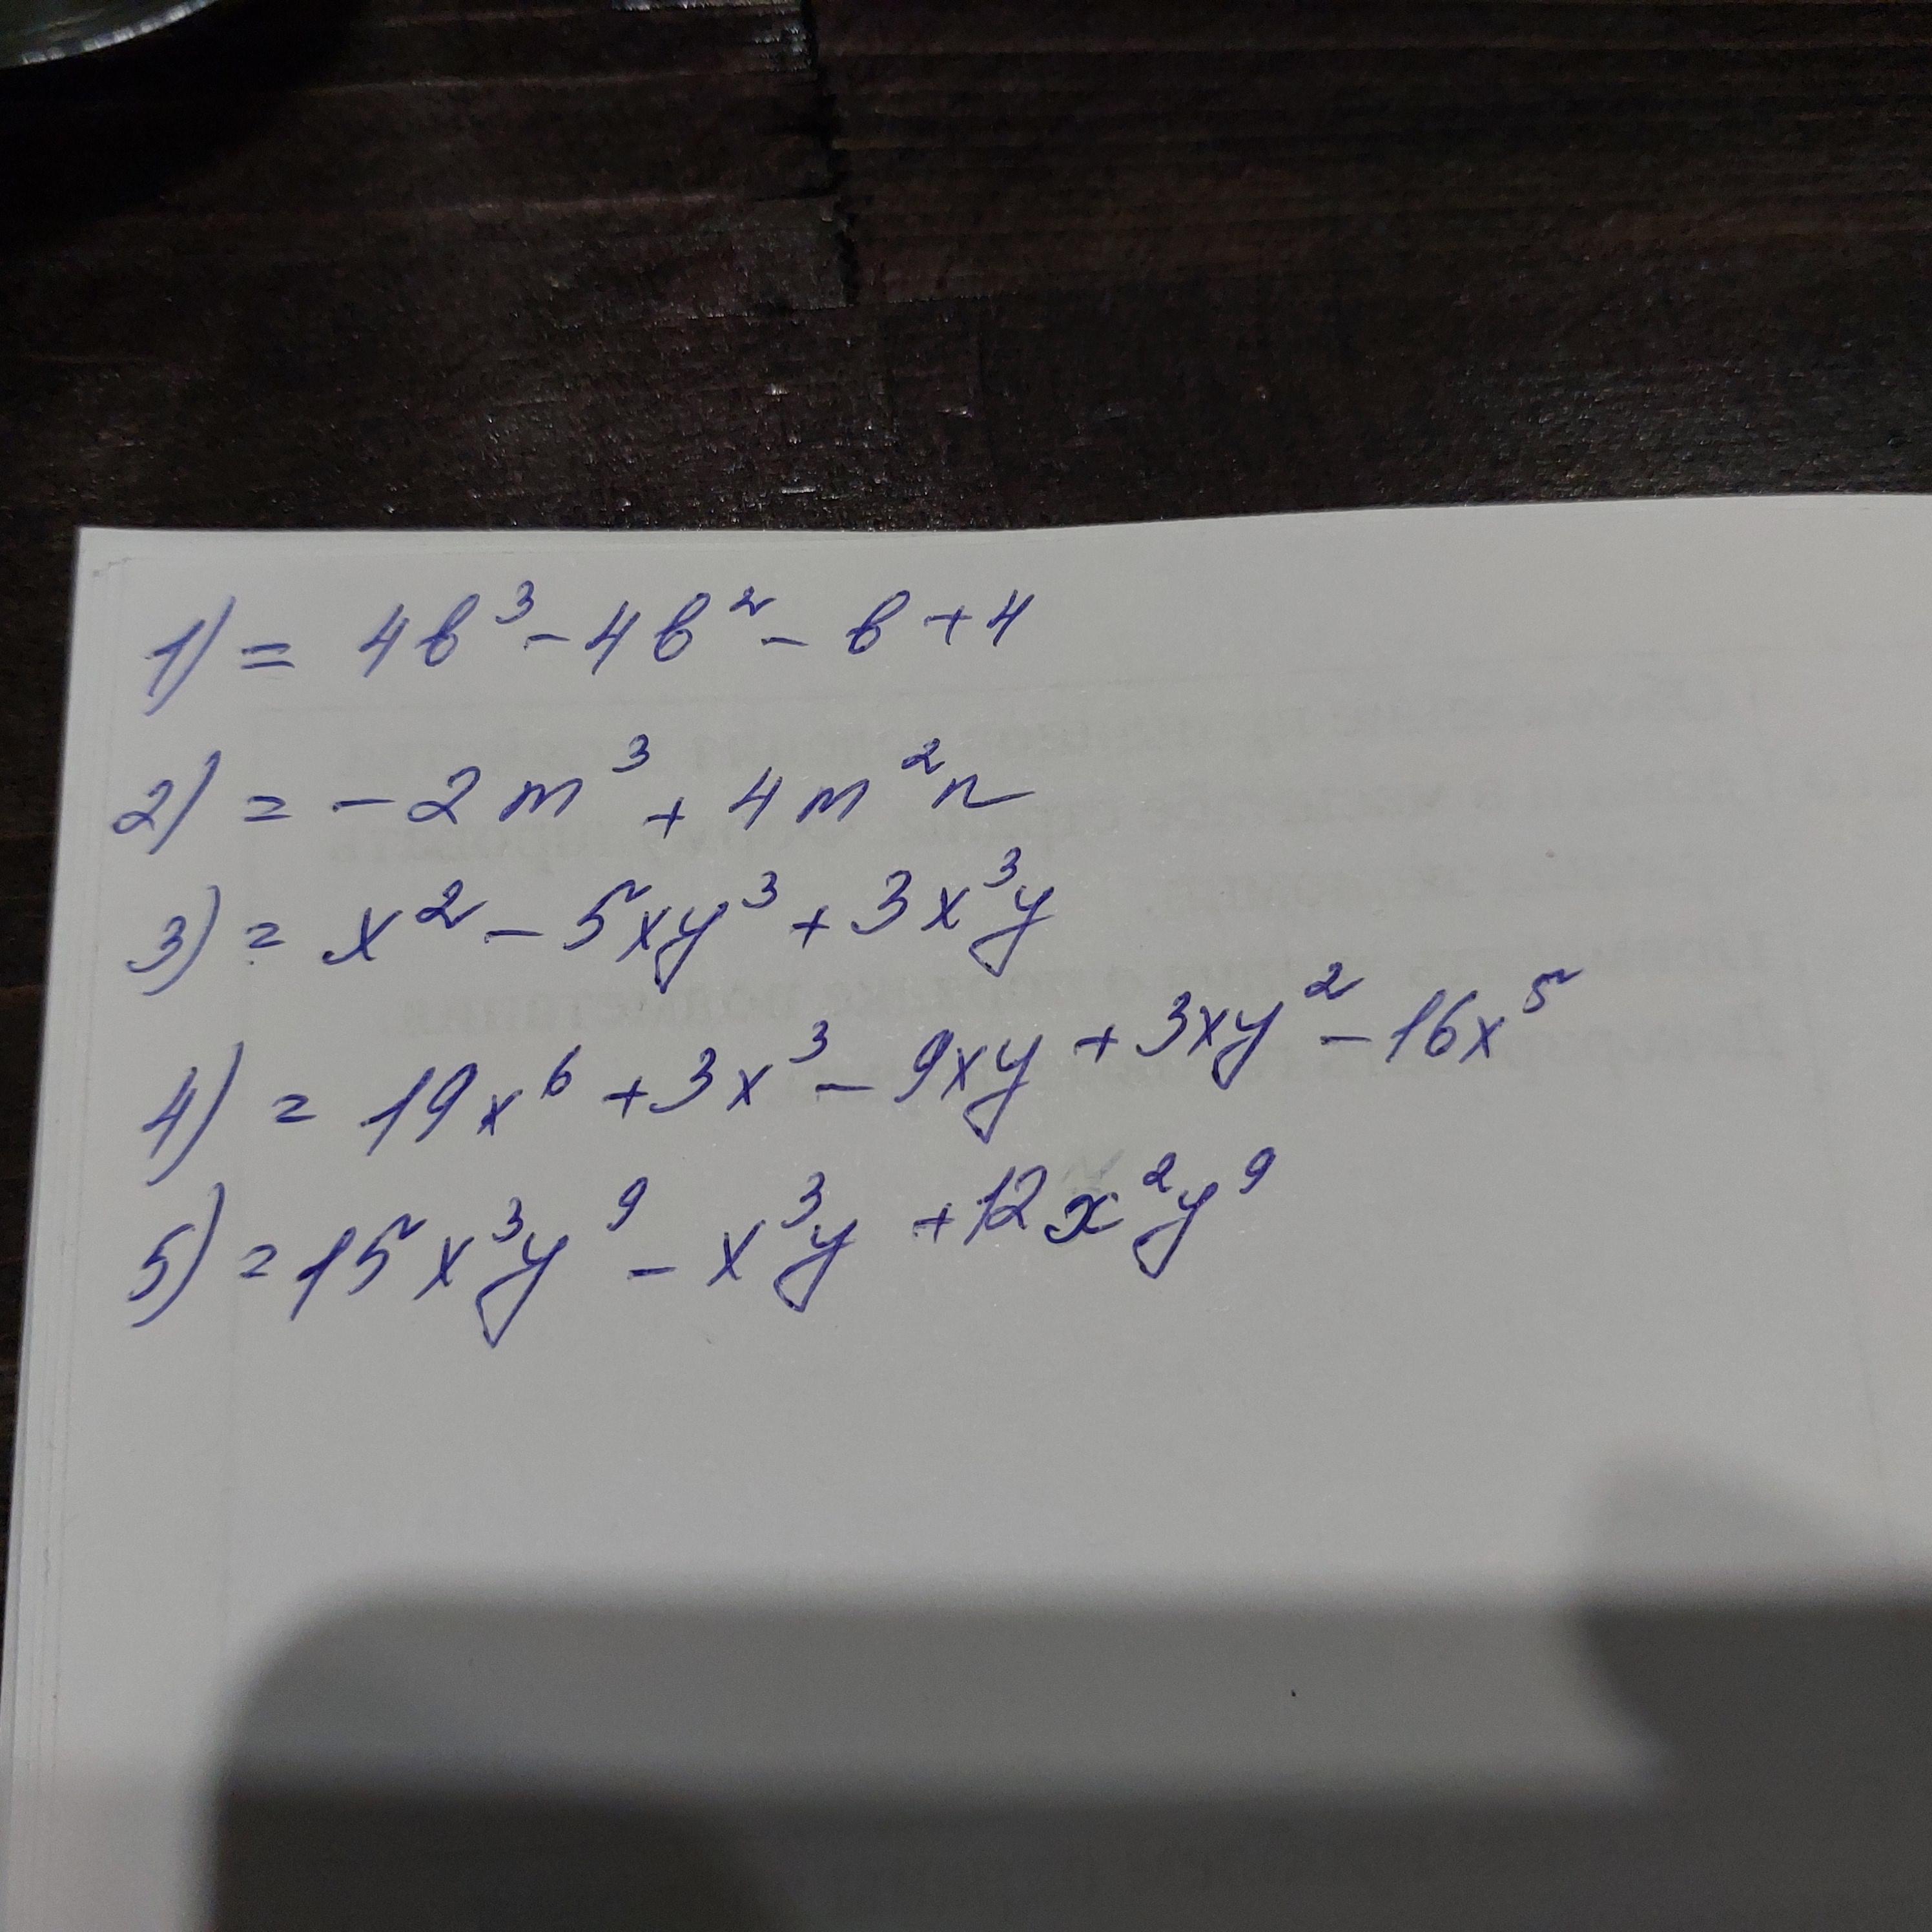 1) = 4b³ - 4b² - b + 4
2) = -2m³ + 4m²n
3) = x² - 5xy³ + 3x³y
4) = 19x⁶ + 3x³ - 9xy + 3xy² - 16x⁵
5) = 15x³y⁹ - x³y + 12x²y⁹